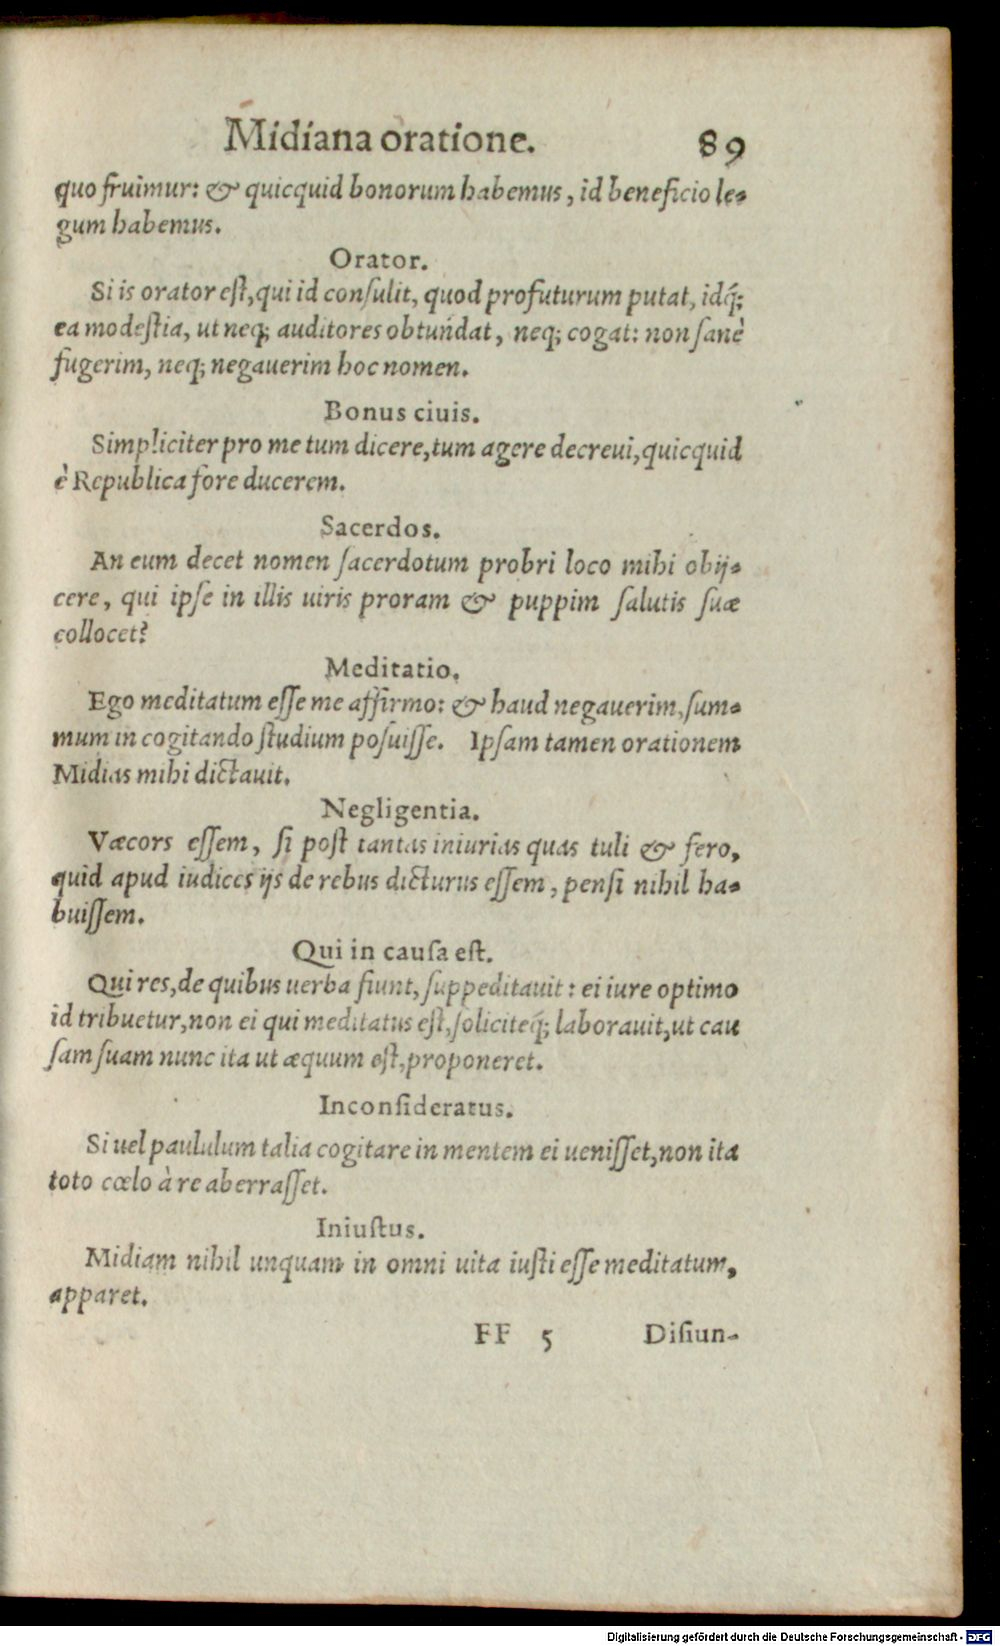 Midiana oratione. 89
quo fruimur: & quicquid bonorum habemus, id beneficio le-
gum habemus.
Orator.
Si is orator eſt, qui id conſulit, quod profuturum putat, idq́;
ea modeſtia, ut neq; auditores obtundat, neq; cogat: non ſanè
fugerim, neq; negauerim hoc nomen.
Bonus ciuis.
Simpliciter pro me tum dicere, tum agere decreui, quicquid
è Republica fore ducerem.
Sacerdos.
An eum decet nomen ſacerdotum probri loco mihi obij-
cere, qui ipſe in illis uiris proram & puppim ſalutis ſuæ
collocet?
Meditatio.
Ego meditatum eſſe me affirmo: & haud negauerim, ſum-
mum in cogitando ſtudium poſuiſſe. Ipſam tamen orationem
Midias mihi dictauit.
Negligentia.
Væcors eſſem, ſi poſt tantas iniurias quas tuli & fero,
quid apud iudices ijs de rebus dicturus eſſem, penſi nihil ha-
buiſſem.
Qui in cauſa eſt.
Qui res, de quibus uerba fiunt, ſuppeditauit: ei iure optimo
id tribuetur, non ei qui meditatus eſt, ſoliciteq́; laborauit, ut cau
ſam ſuam nunc ita ut æquum eſt, proponeret.
Inconſideratus.
Si uel paululum talia cogitare in mentem ei ueniſſet, non ita
toto cœlo à re aberraſſet.
Iniuſtus.
Midiam nihil unquam in omni uita iuſti eſſe meditatum,
apparet.
FF 5 Diſiun-
Digitalisierung gefördert durch die Deutsche Forschungsgemeinschaft - DFG